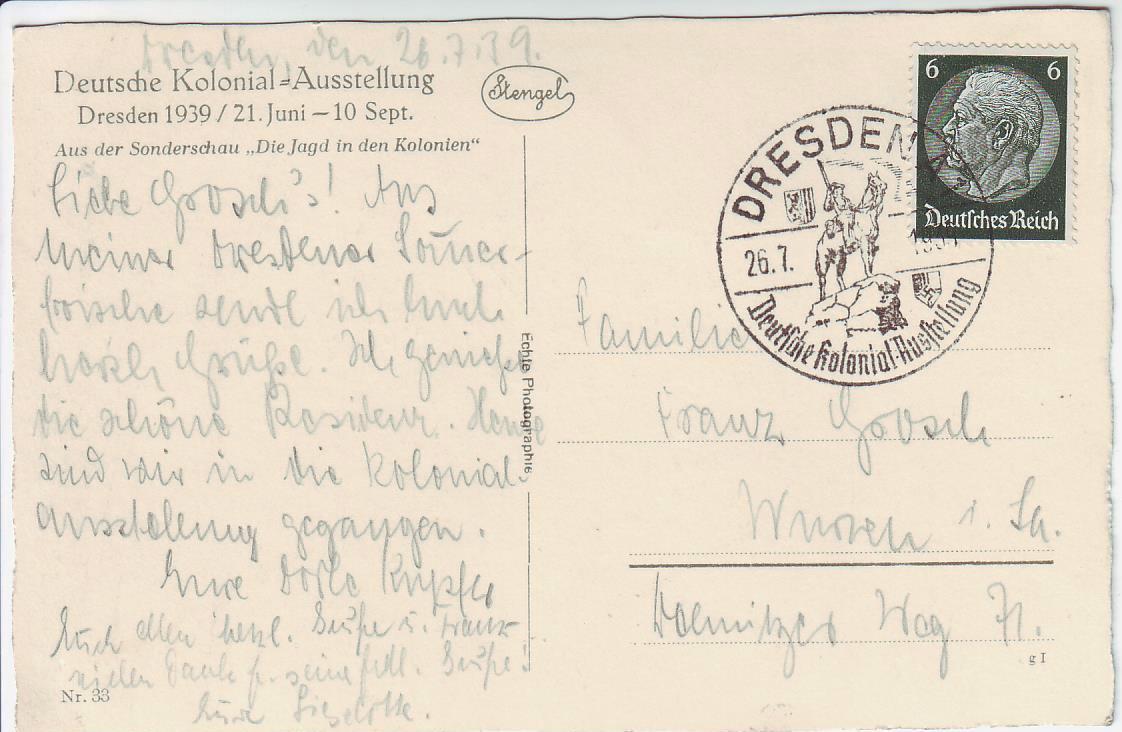 Dresden, den 26.7.39.
Deutsche Kolonial=Ausstellung
Dresden 1939 / 21. Juni — 10 Sept.
Aus der Sonderschau „Die Jagd in den Kolonien“
Stengel
Liebe Grosch's! Aus
meiner Dresdener Somer-
frische sende ich Euch
herzl. Grüße. Ich genieße
die schöne Residenz. Heute
sind wir in die Kolonial-
ausstellung gegangen.
Eure Dorle Kupfer
Euch allen herzl. Grüße u. Franz
vielen Dank f. seine frdl. Grüße!
Eure Lieselotte.
Nr. 33
Echte Photographie
6 6
Deutsches Reich
DRESDEN
26.7.
Deutsche Kolonial-Ausstellung
Familie
Franz Grosch
Wurzen i. Sa.
Dolmitzer Weg 71.
g I